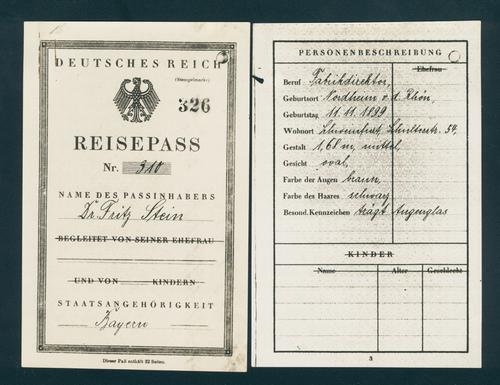 DEUTSCHES REICH
(Stempelmarke)
326
REISEPASS
Nr. 310
NAME DES PASSINHABERS
Dr. Fritz Stein
BEGLEITET VON SEINER EHEFRAU
UND VON KINDERN
STAATSANGEHÖRIGKEIT
Bayern
Dieser Paß enthält 32 Seiten.
PERSONENBESCHREIBUNG
Ehefrau
Beruf Fabrikdirektor,
Geburtsort Nordheim v. d. Rhön,
Geburtstag 11. 11. 1899
Wohnort Schweinfurt, Schultesstr. 34,
Gestalt 1,68 m, mittel,
Gesicht oval,
Farbe der Augen braun,
Farbe des Haares schwarz
Besond. Kennzeichen trägt Augenglas
KINDER
Name Alter Geschlecht
3